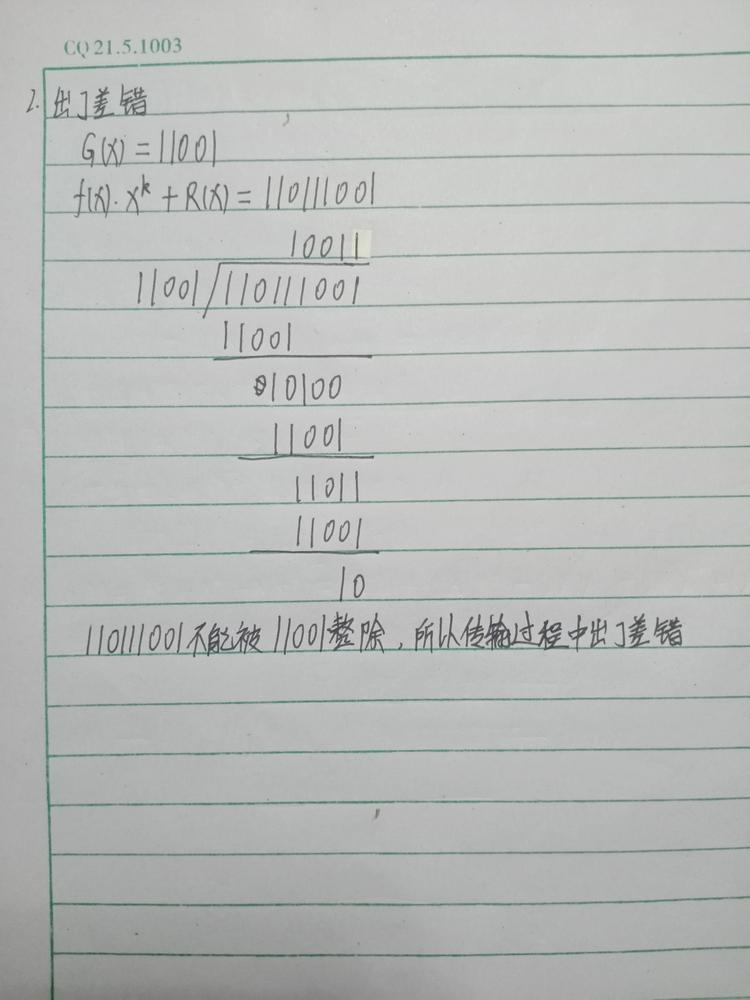 CQ 21.5.1003
2. 出了差错
G(x) = 11001
f(x)·x^k + R(x) = 110111001
10011
11001 / 110111001
11001
010100
11001
11011
11001
10
110111001不能被11001整除，所以传输过程中出了差错